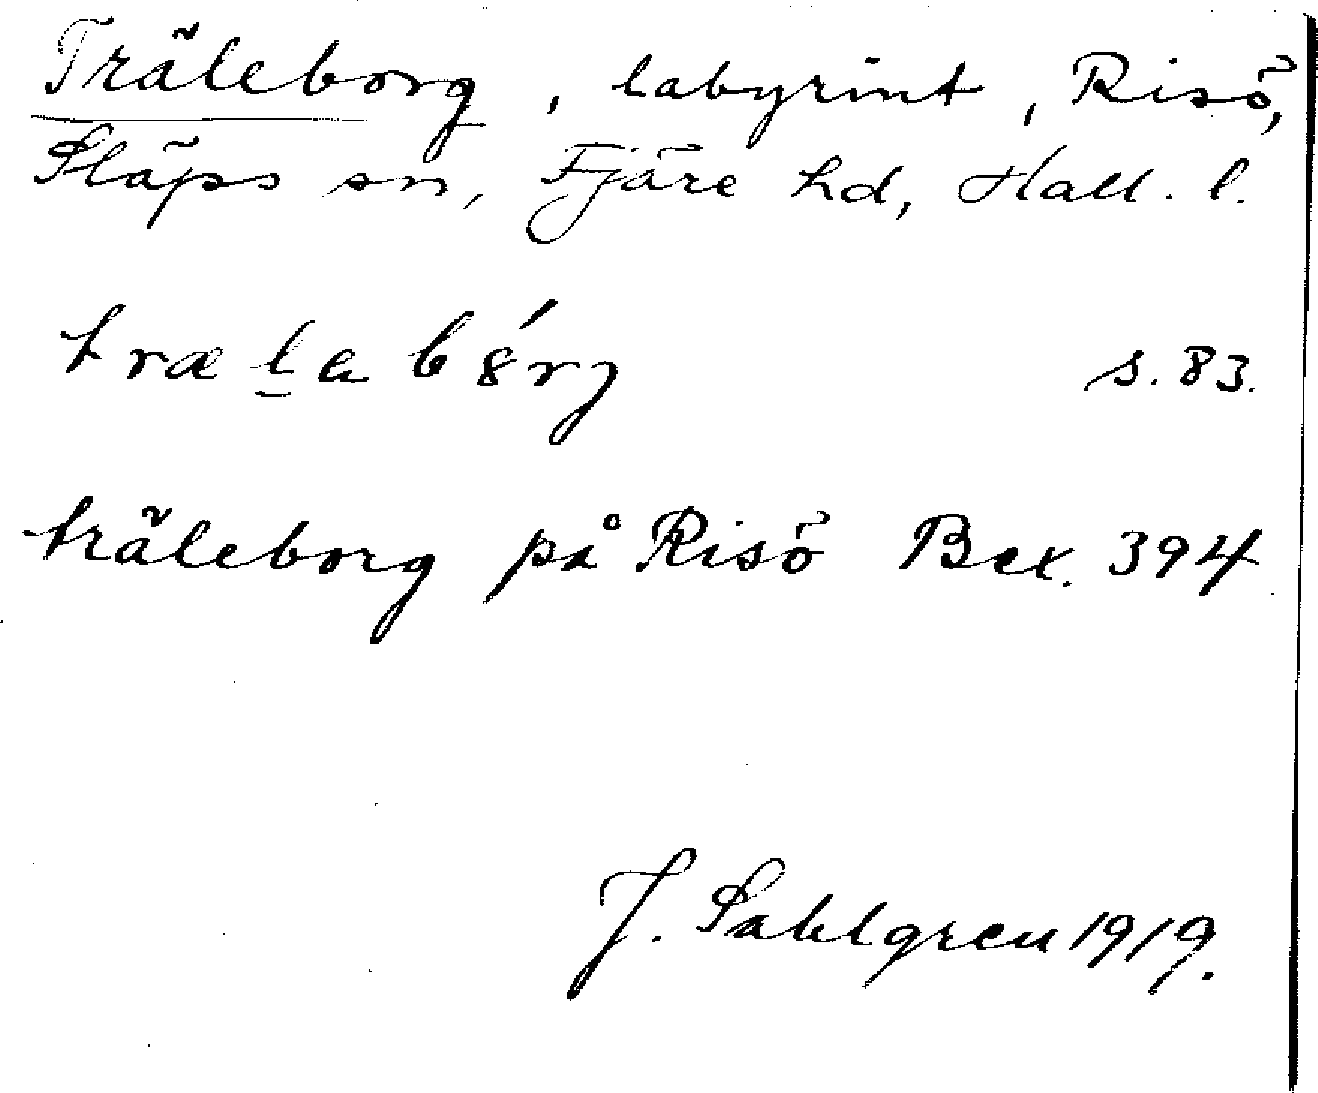 Träleborg, labyrint, Risö,
Släps sn, Fjäre hd, Hall. l.
træla b8́rj s. 83.
träleborg på Risö Bex. 394
J. Sahlgren 1919.